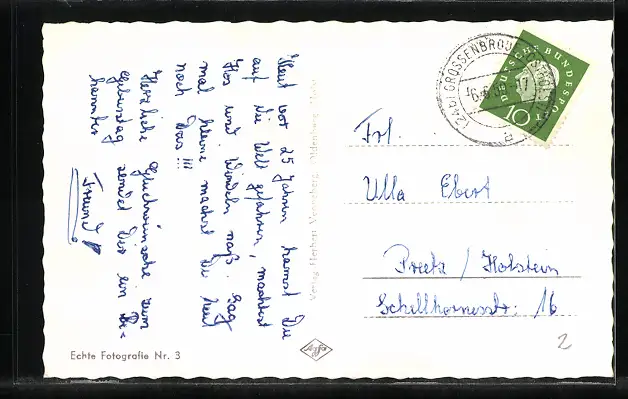 Heut vor 25 Jahren kamst Du
auf die Welt gefahren, machtest
Hos und Windeln naß. Sag
mal kleine machst Du heut
noch Das !!!
Herzliche Glückwünsche zum
Geburtstag sendet Dir ein Be-
kannter
Freund
Echte Fotografie Nr. 3
Agfa
(24b) GROSSENBRODE
DEUTSCHE BUNDESPOST
10
Frl.
Ulla Ebert
Preetz / Holstein
Schellhornerstr: 16
2